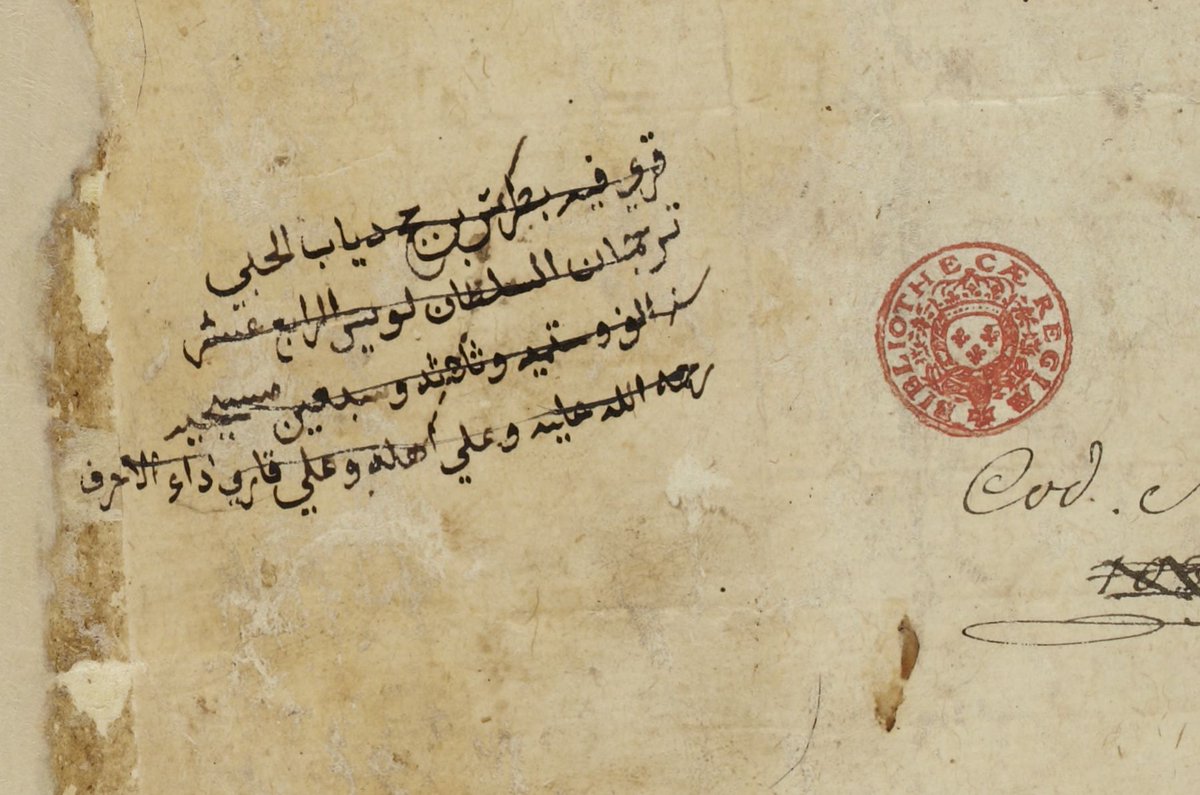 قري فيه بطرس بن دياب الحلبي
ترجمان السلطان لويس الرابع عشر
سنة الف وستميه وثلاثه وسبعين مسيحيه
رحمة الله عليه وعلي اهله وعلي قاري اداء الاحرف
BIBLIOTHECÆ REGIÆ
Cod.